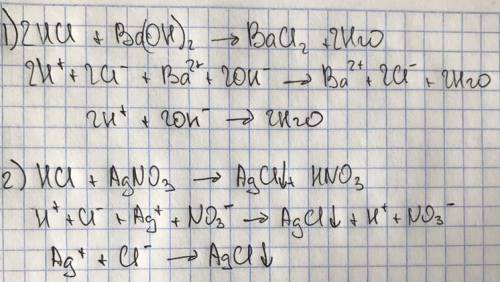 1) 2HCl + Ba(OH)₂ → BaCl₂ + 2H₂O
2H⁺ + 2Cl⁻ + Ba²⁺ + 2OH⁻ → Ba²⁺ + 2Cl⁻ + 2H₂O
2H⁺ + 2OH⁻ → 2H₂O
2) HCl + AgNO₃ → AgCl↓ + HNO₃
H⁺ + Cl⁻ + Ag⁺ + NO₃⁻ → AgCl↓ + H⁺ + NO₃⁻
Ag⁺ + Cl⁻ → AgCl↓